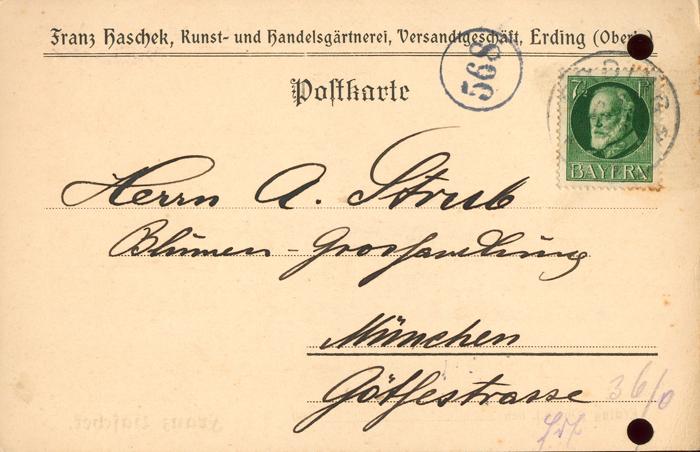 Franz Haschek, Kunst- und Handelsgärtnerei, Versandtgeschäft, Erding
568
Postkarte
7½ P
BAYERN
Herrn A. Strub
Blumen-Groshandlung
München
Göthestrasse
36/0